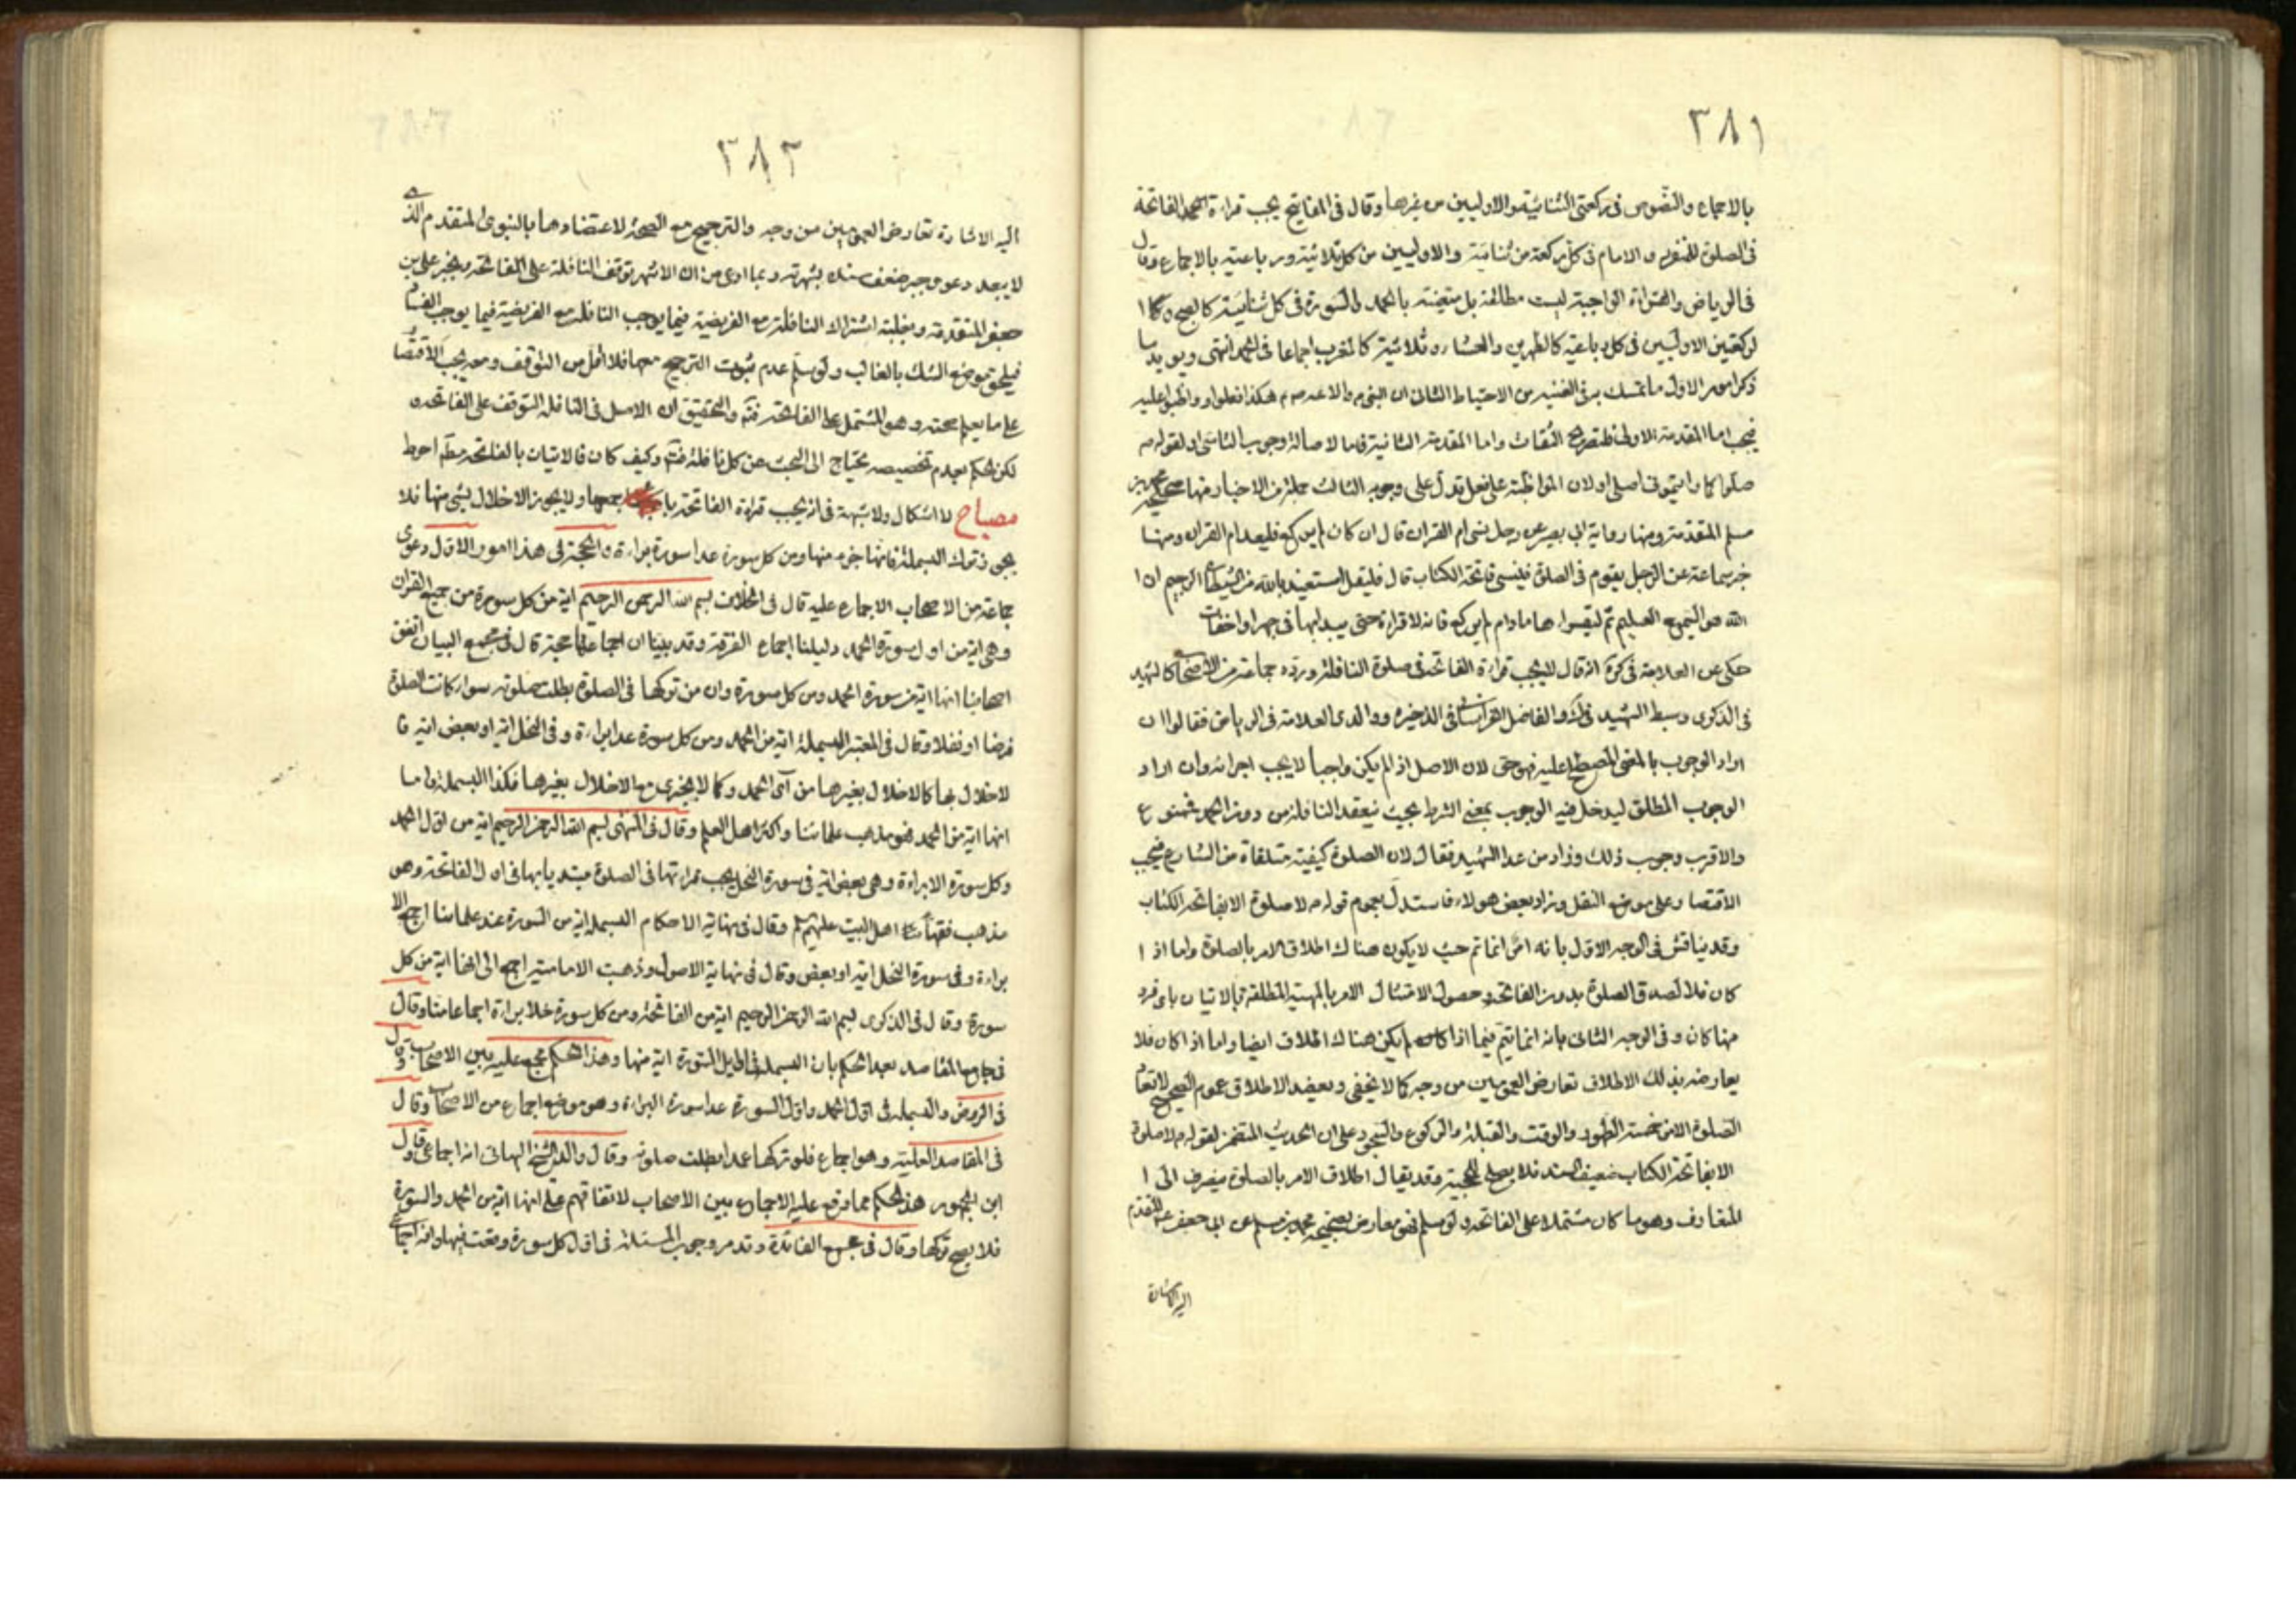 ٣٨١
بالاجماع والنصوص فى ركعتى الثنائية والاوليين من غيرها وقال فى المفاتيح يجب قراءة الحمد الفاتحة
فى الصلوة للمنفرد والامام فى كل ركعة من ثنائية والاوليين من كل ثلاثية ورباعية بالاجماع وقال
فى الرياض والقراءة الواجبة ليست مطلقة بل متعينة بالحمد والسورة فى كل ثنائية كالصبح و
لركعتين الاوليين فى كل رباعية كالظهرين والعشاء وثلاثية كالمغرب اجماعا فى الحمد انتهى ويؤيد ما
ذكر امور الاول ما تمسك به فى الغنية من الاحتياط الثانى ان النبى ص والائمة ع هكذا فعلوا وواظبوا عليه
فيجب اما المقدمة الاولى فلتصريح الثقات واما المقدمة الثانية فلما لاصالة وجوب التاسى او لقوله ص
صلوا كما رايتمونى اصلى او لان المواظبة على فعل تدل على وجوبه الثالث جملة من الاخبار منها صحيح محمد بن
مسلم المتقدمة ومنها رواية ابى بصير عن رجل نسى ام القران قال ان كان لم يركع فليعد ام القران ومنها
خبر سماعة عن الرجل يقوم فى الصلوة فينسى فاتحة الكتاب قال فليقل استعيذ بالله من الشيطان الرجيم ان ا
الله هو السميع العليم ثم ليقراها ما دام لم يركع فانه لا قراءة حتى يبدا بها فى جهر او اخفات
حكى عن العلامة فى كرة انه قال لا يجب قراءة الفاتحة فى صلوة النافلة ورده جماعة من الاصحاب كالشهيد
فى الذكرى وسبط الشهيد فى ك والفاضل الخراسانى فى الذخيرة ووالدى العلامة فى الرياض فقالوا ان
اراد الوجوب بالمعنى المصطلح عليه فهو حق لان الاصل اذا لم يكن واجبا لا يجب اجزائه وان اراد
الوجوب المطلق ليدخل فيه الوجوب بمعنى الشرط بحيث ينعقد النافلة من دون الحمد فممنوع
والاقرب وجوب ذلك وزاد من عدا الشهيد فقال لان الصلوة كيفية متلقاة من الشارع فيجب
الاقتصار على موضع النقل وزاد بعض هولاء فاستدل بعموم قوله ص لا صلوة الا بفاتحة الكتاب
وقد يناقش فى الوجه الاول بانه انما تم حيث لا يكون هناك اطلاق الامر بالصلوة واما اذا
كان فلا لصدق الصلوة بدون الفاتحة وحصول الامتثال الامر بالمهية المطلقة بالاتيان باى فرد
منها كان وفى الوجه الثانى بانه انما يتم فيما اذا كان لم يكن هناك اطلاق ايضا واما اذا كان فلا
يعارضه بذلك الاطلاق تعارض العمومين من وجه كما لا يخفى ويعضد الاطلاق عموم الصحيح لا تعاد
الصلوة الا من خمسة الطهور والوقت والقبلة والركوع والسجود على ان الحديث المتضمن لقوله ص لا صلوة
الا بفاتحة الكتاب ضعيف السند فلا يصلح للحجية وقد يقال اطلاق الامر بالصلوة ينصرف الى ا
المتعارف وهو ما كان مشتملا على الفاتحة ولو سلم فهو معارض بصحيحة محمد بن مسلم عن ابى جعفر ع المتقدم
اليه الاشارة
٣٨٢
اليه الاشارة تعارض العمومين من وجه والترجيح مع الصحيحة لاعتضادها بالنبوى المتقدم الذى
لا يبعد دعوى جبر ضعف سنده بشهرته وبما ادعى من ان الاشهر توقف النافلة على الفاتحة وبخبر على بن
جعفر المتقدمة وبغلبة اشتراك النافلة مع الفريضة فيما يوجب النافلة مع الفريضة فيما يوجب الفساد
فيلحق موضع الشك بالغالب ولو سلم عدم ثبوت الترجيح معها فلا اقل من التوقف ومعه يجب الاقتصار
على ما يعلم صحته وهو المشتمل على الفاتحة فتم والتحقيق ان الاصل فى النافلة التوقف على الفاتحة
لكن الحكم بعدم تخصيصه يحتاج الى البحث عن كل نافلة فتم وكيف كان فالاتيان بالفاتحة مطلقا احوط
مصباح لا اشكال ولا شبهة فى انه يجب قراءة الفاتحة باجمعها ولا يجوز الاخلال بشى منها فلا
يجوز ترك البسملة فانها جزء منها ومن كل سورة عدا سورة براءة والحجة فى هذا امور الاول دعوى
جماعة من الاصحاب الاجماع عليه قال فى الخلاف بسم الله الرحمن الرحيم اية من كل سورة من جميع القران
وهى اية من اول سورة الحمد دليلنا اجماع الفرقة وقد بينا ان اجماعها حجة قال فى مجمع البيان اتفق
اصحابنا انها اية من سورة الحمد ومن كل سورة وان من تركها فى الصلوة بطلت صلوته سواء كانت الصلوة
فرضا او نفلا وقال فى المعتبر البسملة اية من الحمد ومن كل سورة عدا براءة وفى النمل اية او بعض اية فا
لاخلال بها كالاخلال بغيرها من آى الحمد وكما لا يجزى مع الاخلال بغيرها فكذا البسملة واما
انها اية من الحمد فهو مذهب علمائنا واكثر اهل العلم وقال فى المنتهى بسم الله الرحمن الرحيم اية من اول الحمد
وكل سورة الا براءة وهى بعض اية فى سورة النمل يجب قراءتها فى الصلوة مبتديا بها فى اول الفاتحة وهو
مذهب فقهاء اهل البيت عليهم السلام وقال فى نهاية الاحكام البسملة اية من السورة عند علمائنا اجمع الا
براءة وفى سورة النمل اية او بعض وقال فى نهاية الاصول وذهبت الامامية اجمع الى انها اية من كل
سورة وقال فى الذكرى بسم الله الرحمن الرحيم اية من الفاتحة ومن كل سورة خلا براءة اجماعا منا وقال
فى جامع المقاصد بعد الحكم بان البسملة فى اول السورة اية منها وهذا الحكم مجمع عليه بين الاصحاب وقال
فى الروض والبسملة فى اول الحمد واول السورة عدا سورة البراءة وهو موضع اجماع من الاصحاب وقال
فى المقاصد العلية وهو اجماع فلو تركها عمدا بطلت صلوته وقال والد الشيخ البهائى انه اجماعى وقال
ابن الجمهور هذا الحكم مما وقع عليه الاجماع بين الاصحاب لاتفاقهم على انها اية من الحمد والسورة
فلا يصح تركها وقال فى مجمع الفائدة وقد مر وجوب البسملة فى اول كل سورة وقعت فيها وانه اجماعى